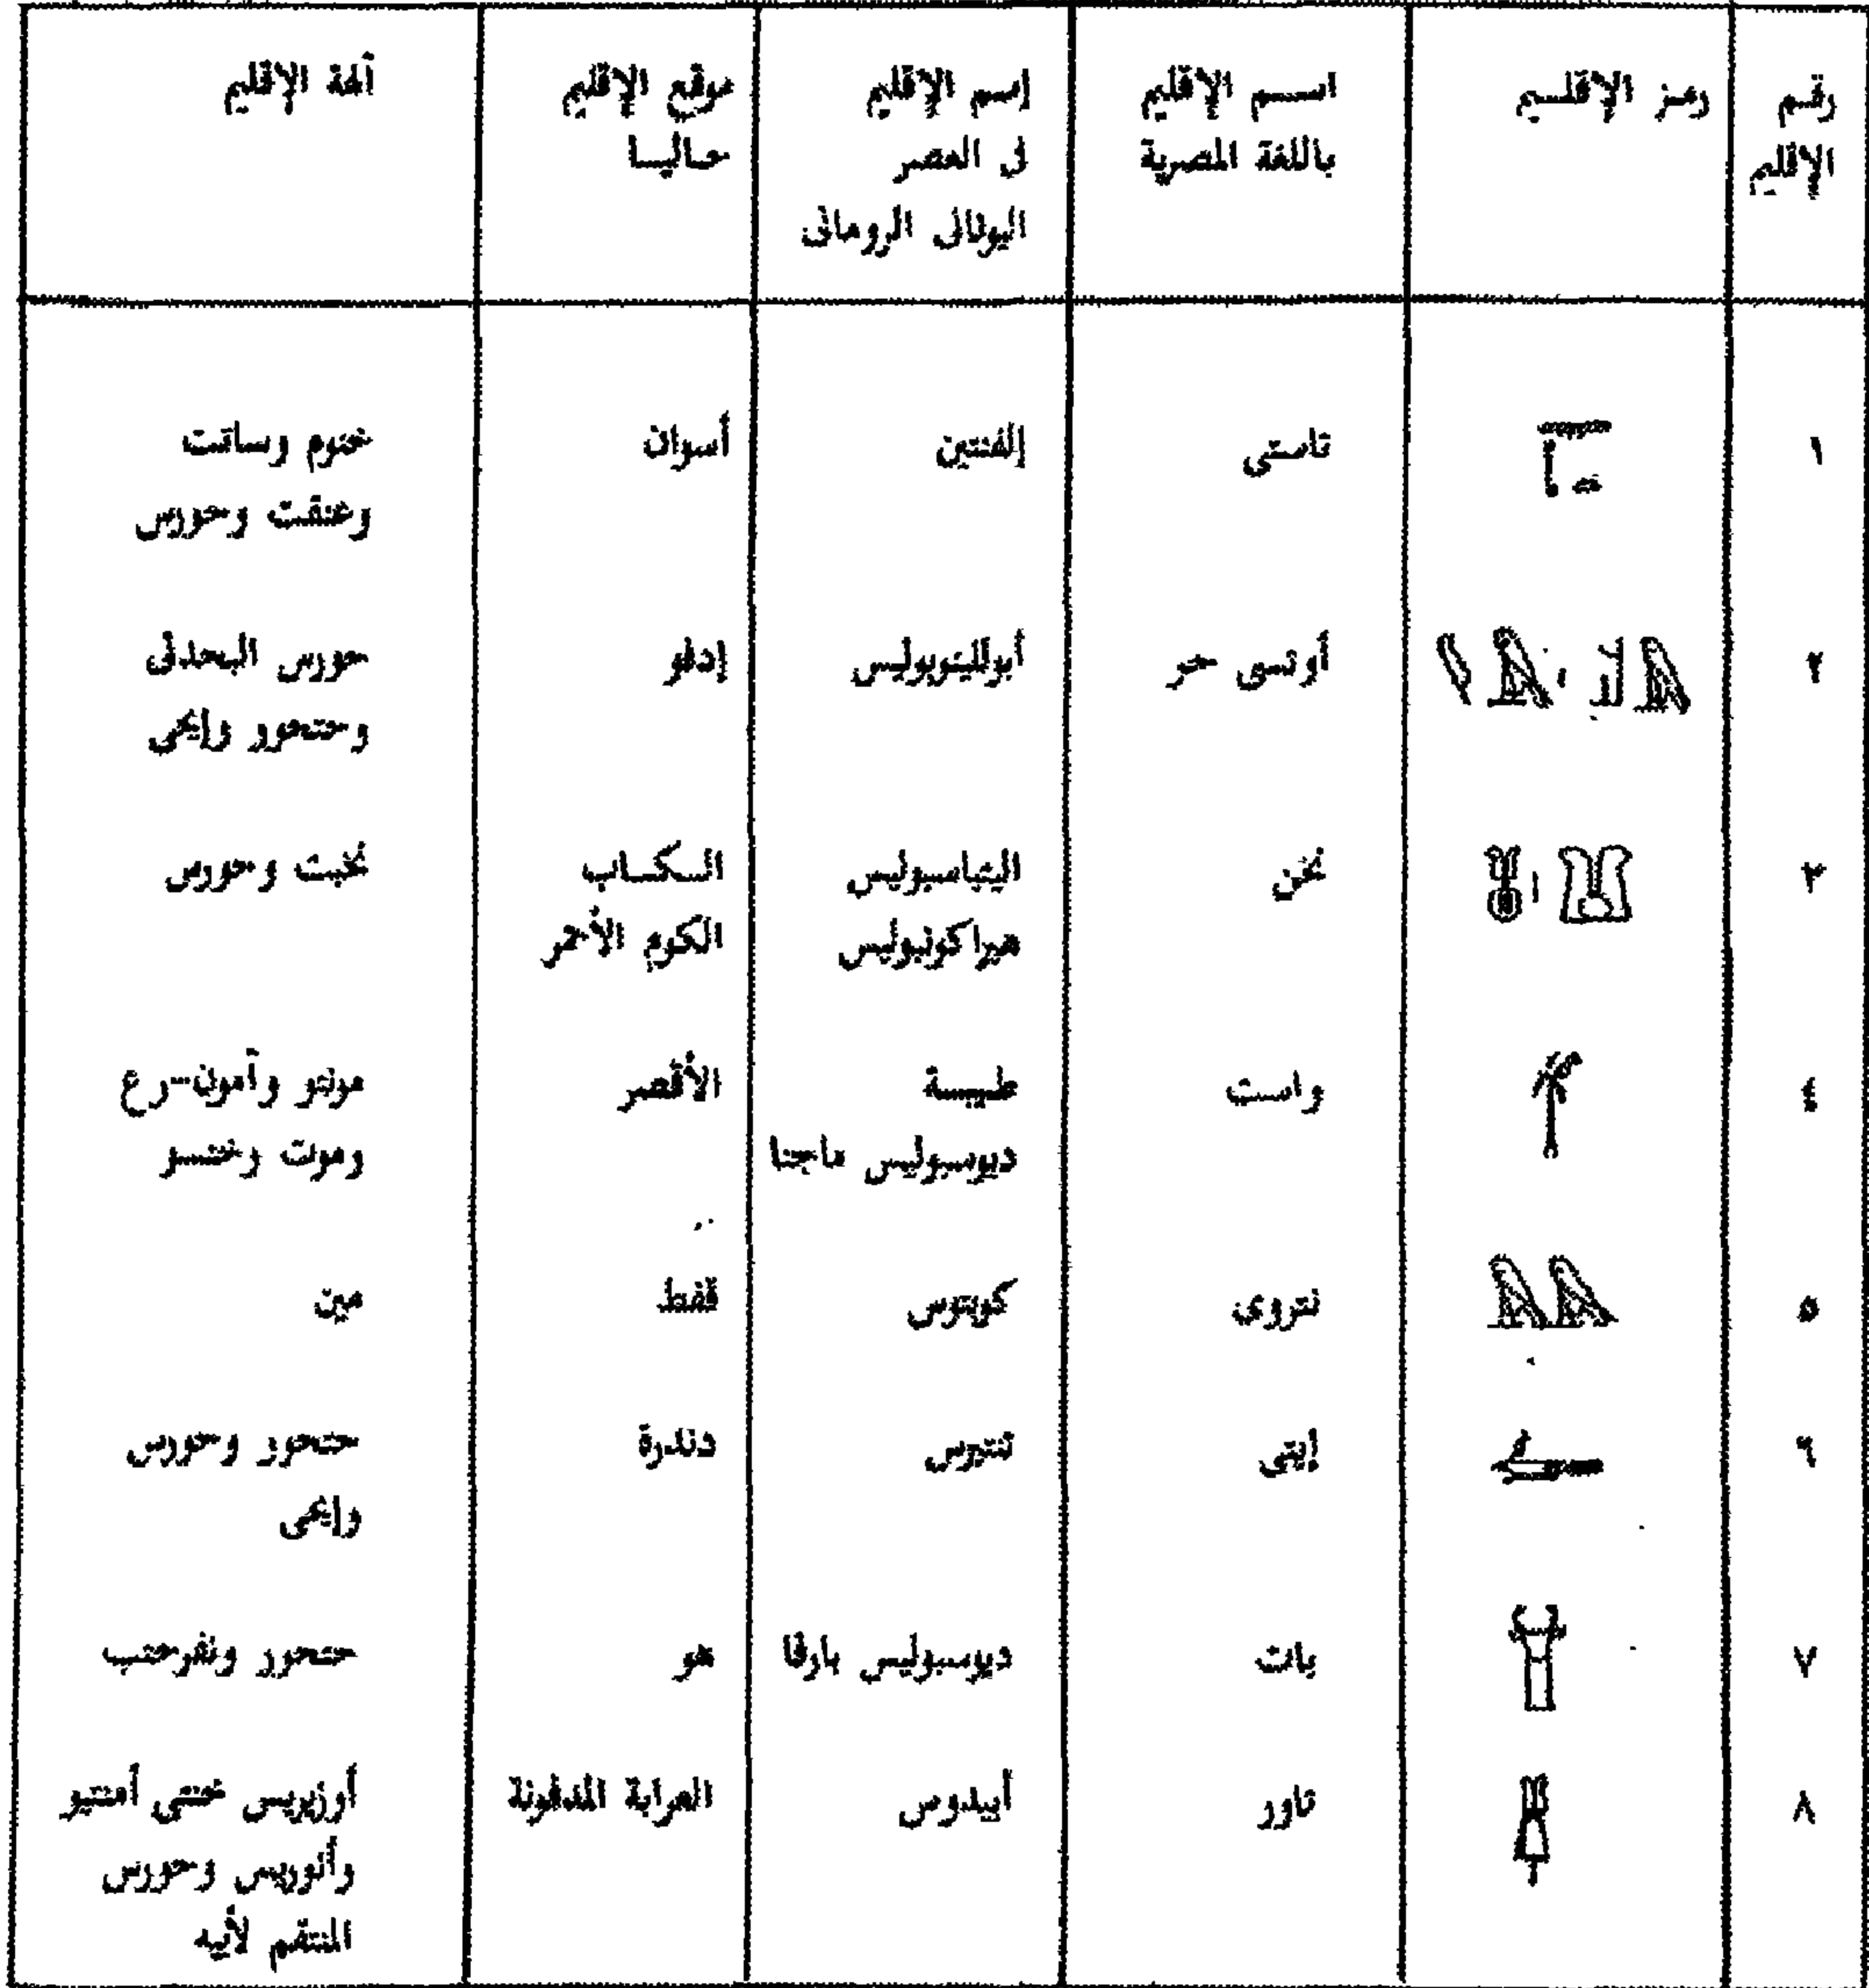 رقم الإقليم
رمز الإقليم
اسم الإقليم باللغة المصرية
إسم الإقليم فى العصر اليونانى الرومانى
موقع الإقليم حاليا
آلهة الإقليم
١ تاستى إلفنتين أسوان خنوم وساتت
وعنقت وحورس
٢ أوتسى حر أبوللينوبوليس إدفو حورس البحدتى
وحتحور وإيحى
٣ نخن اليثياسبوليس السكاب نخبت وحورس
هيراكونبوليس الكوم الأحمر
٤ واست طيبة الأقصر مونتو وآمون-رع
ديوسبوليس ماجنا وموت وخنسو
٥ نتروى كوبتوس قفط مين
٦ إيتى تنتيرس دندرة حتحور وحورس
وإيحى
٧ بات ديوسبوليس بارفا هو حتحور ونفرحتب
٨ تاور أبيدوس العرابة المدفونة أوزيريس خنتى أمنتيو
وأنوريس وحورس
المنتقم لأبيه